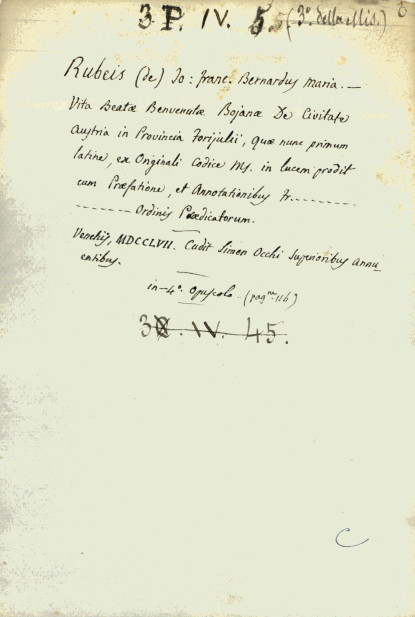 3 P. IV. 5. 5 (3º. della Mis.)
Rubeis (de) Jo: Franc. Bernardus Maria. —
Vita Beatæ Benvenutæ Bojanæ De Civitate
Austria in Provincia Forijulii, quæ nunc primum
latine, ex Originali Codice Ms. in lucem prodit
cum Præfatione, et Annotationibus Fr.----------
-------- Ordinis Prædicatorum.
Venetijs, MDCCLVII. Cudit Simon Occhi Superioribus Annu-
entibus.
in-4º. Opuscolo - (pagne. 116)
IV. 45.
C